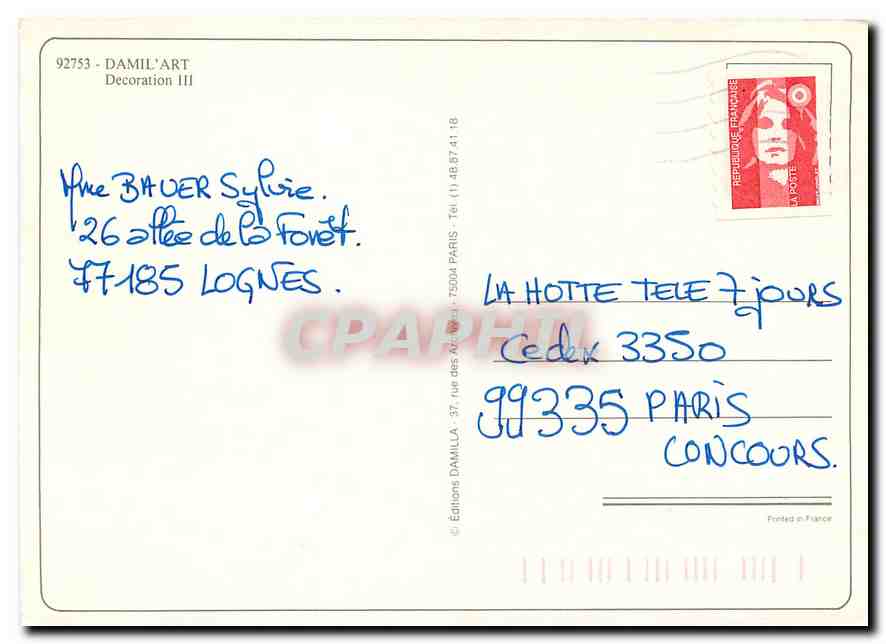 92753 - DAMIL'ART
Decoration III
Mme BAUER Sylvie.
26 allée de la Forêt.
77185 LOGNES.
© Éditions DAMILLA - 37, rue des Archives - 75004 PARIS - Tél. (1) 48 87 41 18
RÉPUBLIQUE FRANÇAISE
LA POSTE
LA HOTTE TELE 7 jOURS
Cedex 3350
99335 PARIS
CONCOURS.
Printed in France
CPAPHIL